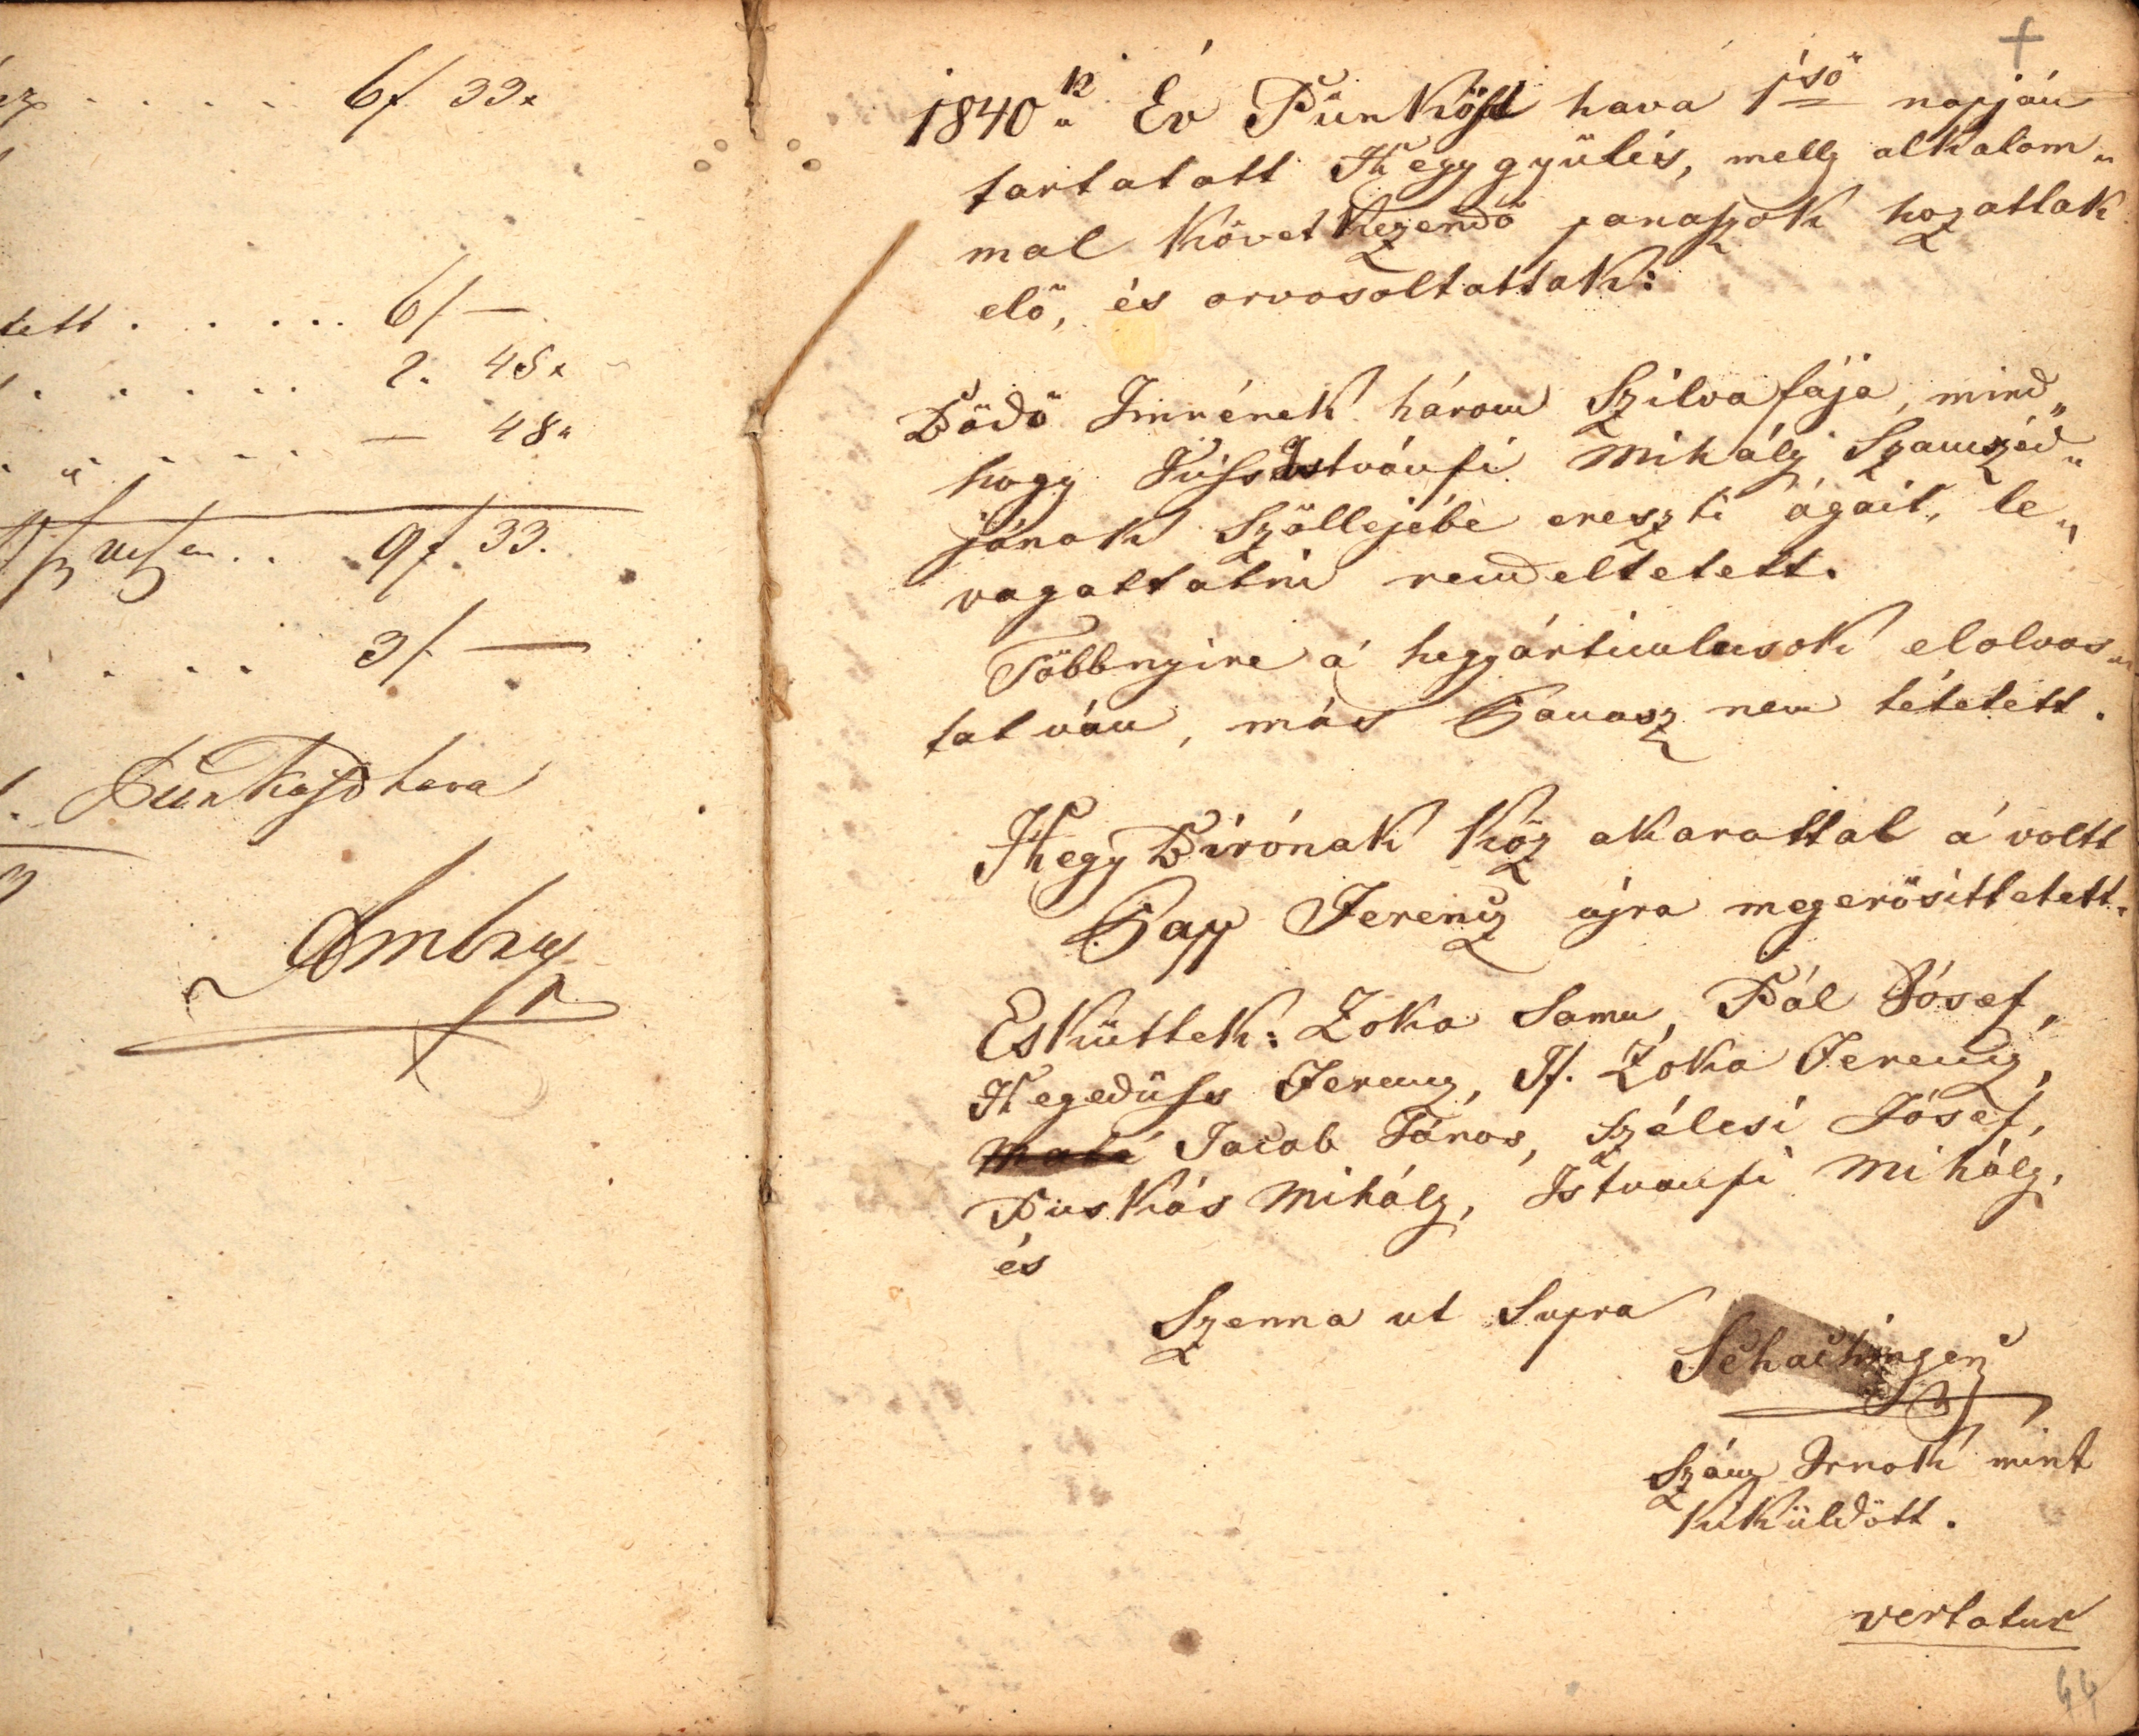 6f 33x
tett . . . . . . 6f —
2. 48x
— 48x
9f. 33.
3f —
Pünkösd hava
Ambrus
1840k Év Pünkösd hava 1ső napján
tartatott Hegygyülés, melly alkalom„
mal következendő panaszok hozattak
elő, és orvosoltattak:
Bödö Imrének három Szilvafája, mind„
hogy Istvánfi Mihály Szamszéd„
jának Szöllejébe ereszti ágait, le„
vagattatni rendeltetett.
Többnyire a' hegyárticulusok elolvas„
tatván, más Panasz nem tétetett.
Hegy Birónak köz akarattal a' voltt
Papp Ferencz újra megerősíttetett.
Esküttek: Zóka Samu, Bál Jósef,
Hegedüss Ferencz, If. Zóka Ferencz,
Jacab János, Szélesi Jósef,
Puskás Mihály, Istvanfi Mihály,
és
Szenna ut Supra
Schachinger
Szám Irnok mint
Kiküldött.
vertatur
44